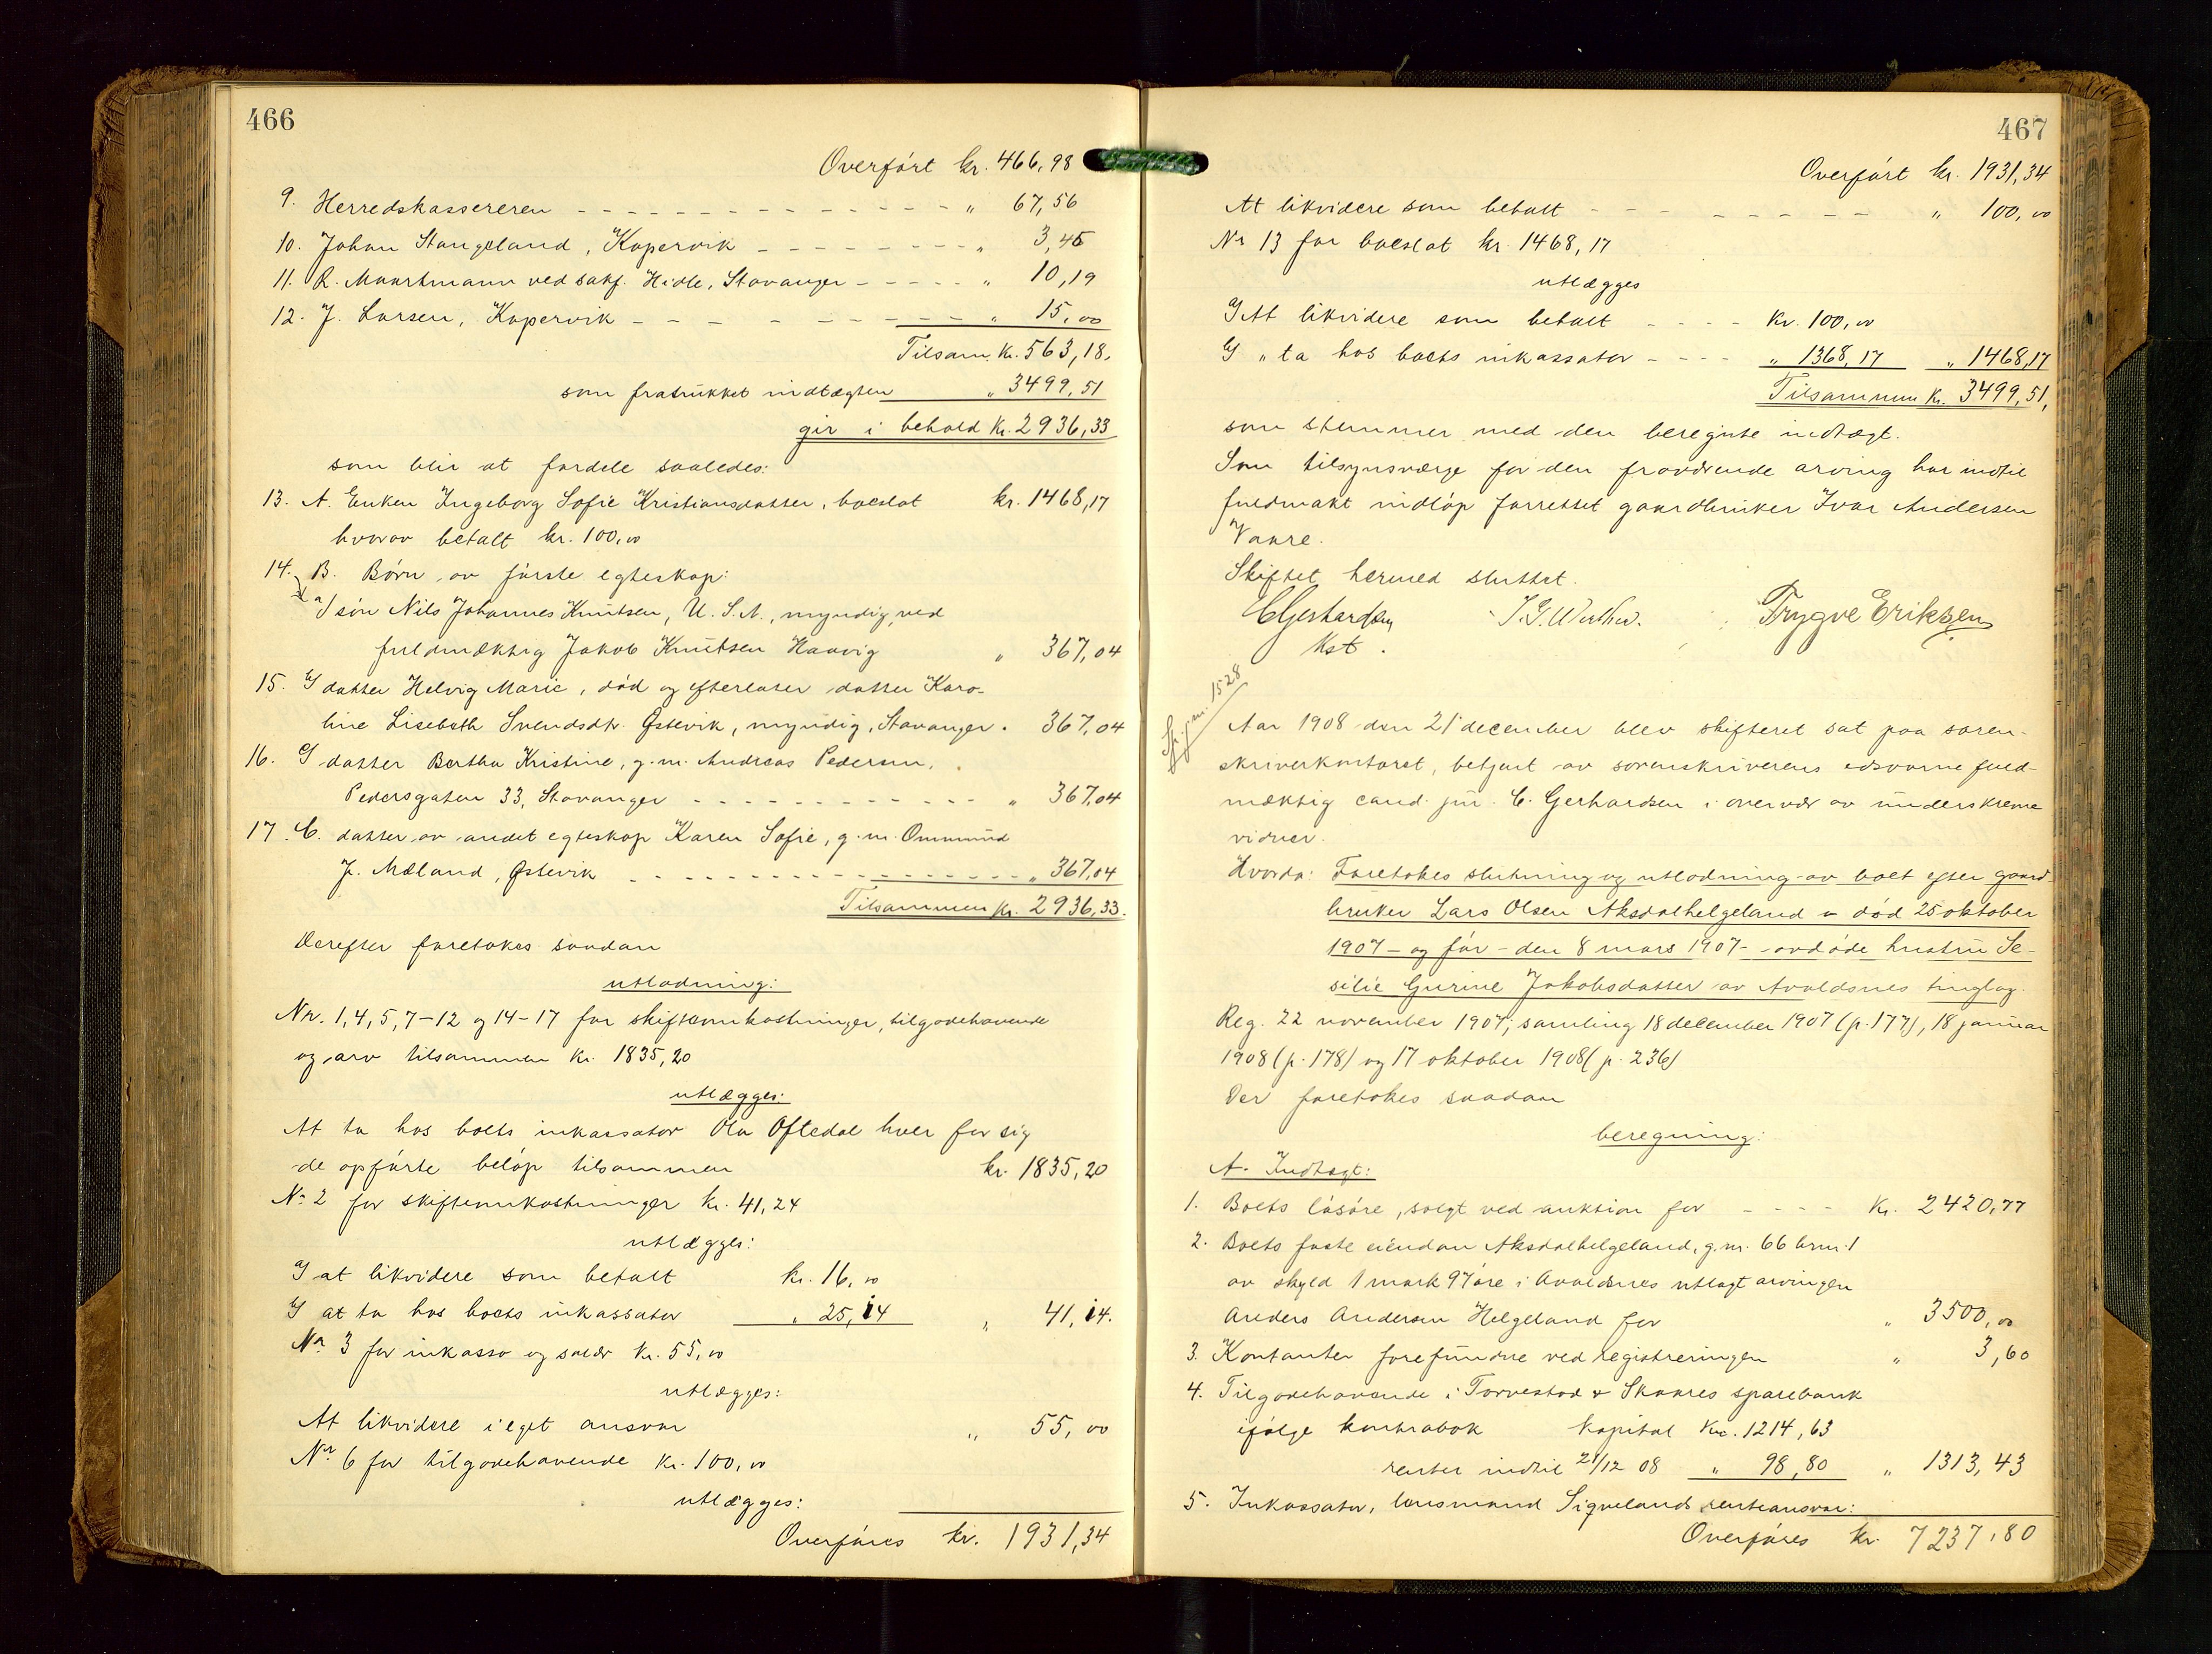 466
Overført kr. 466,98
9. Herredskassereren - - - - - - - - - - - - - " 67,56
10. Johan Stangeland, Kopervik - - - - - - - - " 3,45
11. R. Maartmann ved sakf. Hidle, Stavanger - - - - - " 10,19
12. J. Larsen, Kopervik - - - - - - - - - " 15,00
Tilsam. Kr. 563,18.
som fratrukket indtægten " 3499,51
gir i behold Kr. 2936,33
som blir at fordele saaledes:
13. A. Enken Ingeborg Sofie Kristiansdatter, boeslot kr. 1468,17
hvorav betalt kr. 100,00
14. B. Børn av første egteskap:
a/ søn Nils Johannes Knutsen, U.S.A., myndig, ved
fuldmæktig Jakob Knutsen Haavig " 367,04
15. b/ datter Helvig Marie, død og efterlater datter Karo-
line Lisebeth Svendsdtr. Østevik, myndig, Stavanger. 367,04
16. c/ datter Bertha Kristine, g.m. Andreas Pedersen,
Pedersgaten 33, Stavanger - - - - - - - - - - - - " 367,04
17. C. datter av andet egteskap Karen Sofie, g.m. Ommund
J. Mæland, Østevik - - - - - - - - - - - - - - - " 367,04
Tilsammen kr. 2936,33.
Derefter foretokes saadan
utlodning:
Nr. 1, 4, 5, 7-12 og 14-17 for skifteomkostninger, tilgodehavende
og arv tilsammen kr. 1835,20
utlægges:
At ta hos boets inkassator Ola Oftedal hver for sig
de opførte beløp tilsammen kr. 1835,20
Nr 2 for skifteomkostninger kr. 41,24
utlægges:
a/ at likvidere som betalt kr. 16,00
b/ at ta hos boets inkassator " 25,14 " 41,14.
Nr 3 for inkasso og salær Kr. 55,00
utlægges:
At likvidere i eget ansvar " 55,00
Nr 6 for tilgodehavende Kr. 100,00
utlægges:
Overføres kr. 1931,34
467
Overført kr. 1931,34
At likvidere som betalt - - - - - - - - - " 100,00
Nr 13 for boeslot kr. 1468,17
utlægges
a/ At likvidere som betalt - - - - Kr. 100,00
b/ " ta hos boets inkassator - - - - " 1368,17 " 1468,17
Tilsammen Kr. 3499,51,
som stemmer med den beregnte indtægt.
Som tilsynsværge for den fraværende arving har indtil
fuldmakt indløp forrettet gaardbruker Ivar Andersen
Vaare.
Skiftet hermed sluttet.
C Gerhardsen Trygve Eriksen
Kst.
1528
Aar 1908 den 21 december blev skifteret sat paa soren-
skriverkontoret, betjent av sorenskriverens edsvorne fuld-
mæktig cand. jur. C. Gerhardsen i overvær av underskrevne
vidner.
Hvorda: Foretokes slutning og utlodning av boet efter gaard-
bruker Lars Olsen Aksdalhelgeland - død 25 oktober
1907 - og før - den 8 mars 1907 - avdøde hustru Se-
silie Gurine Jakobsdatter av Avaldsnes tinglag.
Reg. 22 november 1907; samling 18 december 1907 (p. 177), 18 januar
1908 (p. 178) og 17 oktober 1908 (p. 236)
Der foretokes saadan
beregning:
A. Indtægt:
1. Boets løsøre, solgt ved auktion for - - - - Kr. 2420,77
2. Boets faste eiendom Aksdalhelgeland, g.nr. 66 brnr. 1
av skyld 1 mark 97 øre i Avaldsnes utlagt arvingen
Anders Andersen Helgeland for " 3500,00
3. Kontanter forefundne ved registreringen " 3,60
4. Tilgodehavende i Torvestad & Skaares sparebank
ifølge kontrabok kapital Kr. 1214,63
renter indtil 21/12 08 " 98,80 " 1313,43
5. Inkassator, lensmand Sigvelands renteansvar:
Overføres kr. 7237,80